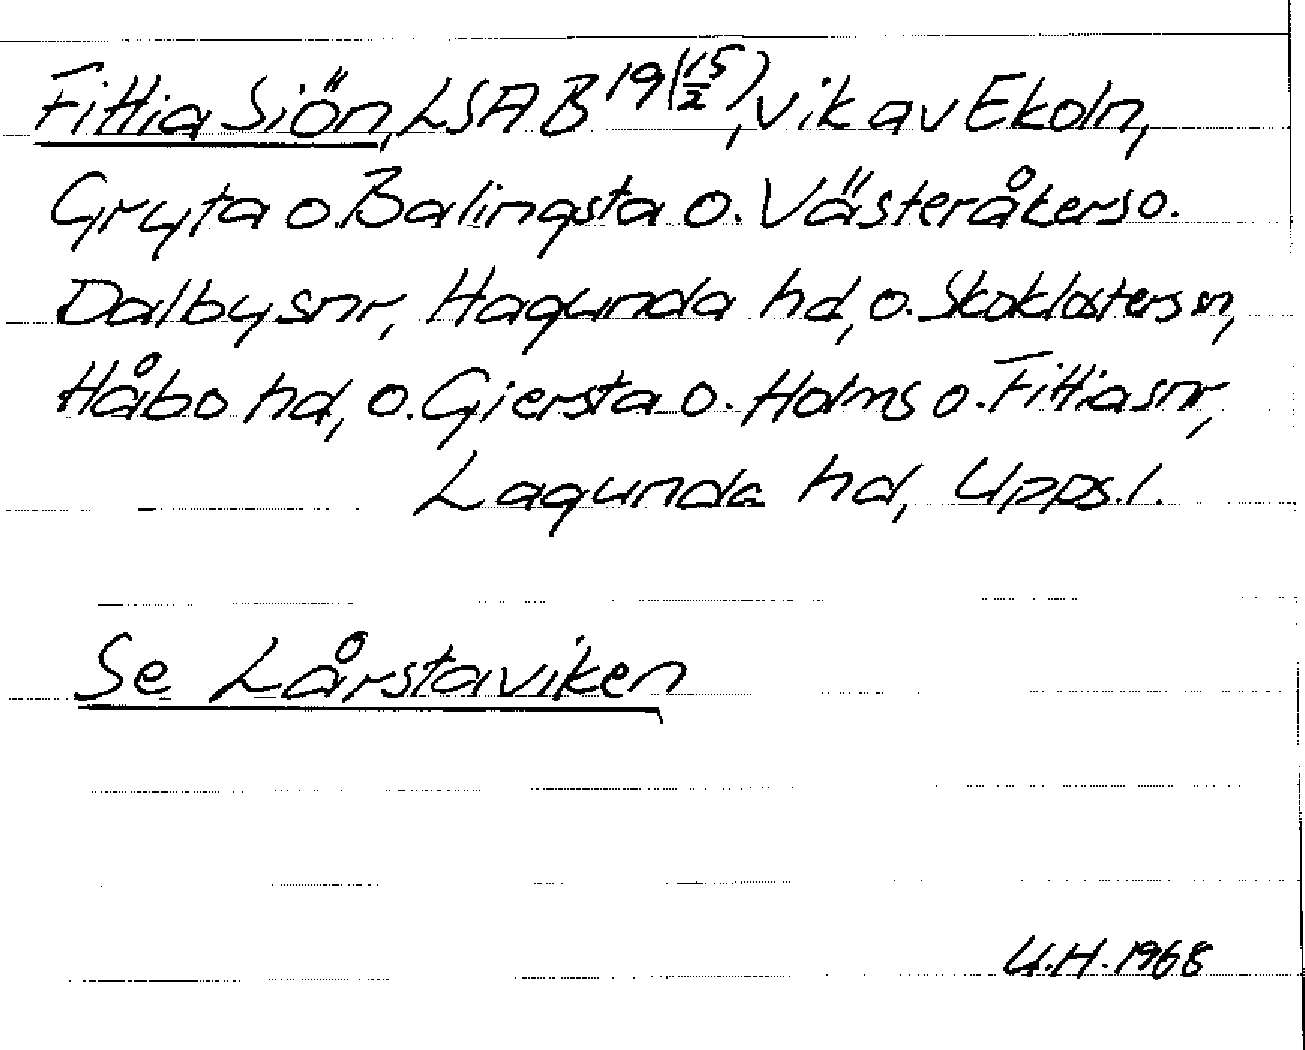 Fittia Siön, LSA B 19 (15/2), vik av Ekoln,
Gryta o. Balingsta o. Västeråkers o.
Dalby snr, Hagunda hd, o. Skoklosters sn,
Håbo hd, o. Giersta o. Holms o. Fittia snr,
Lagunda hd, Upps. l.
Se Lårstaviken
U.H. 1968